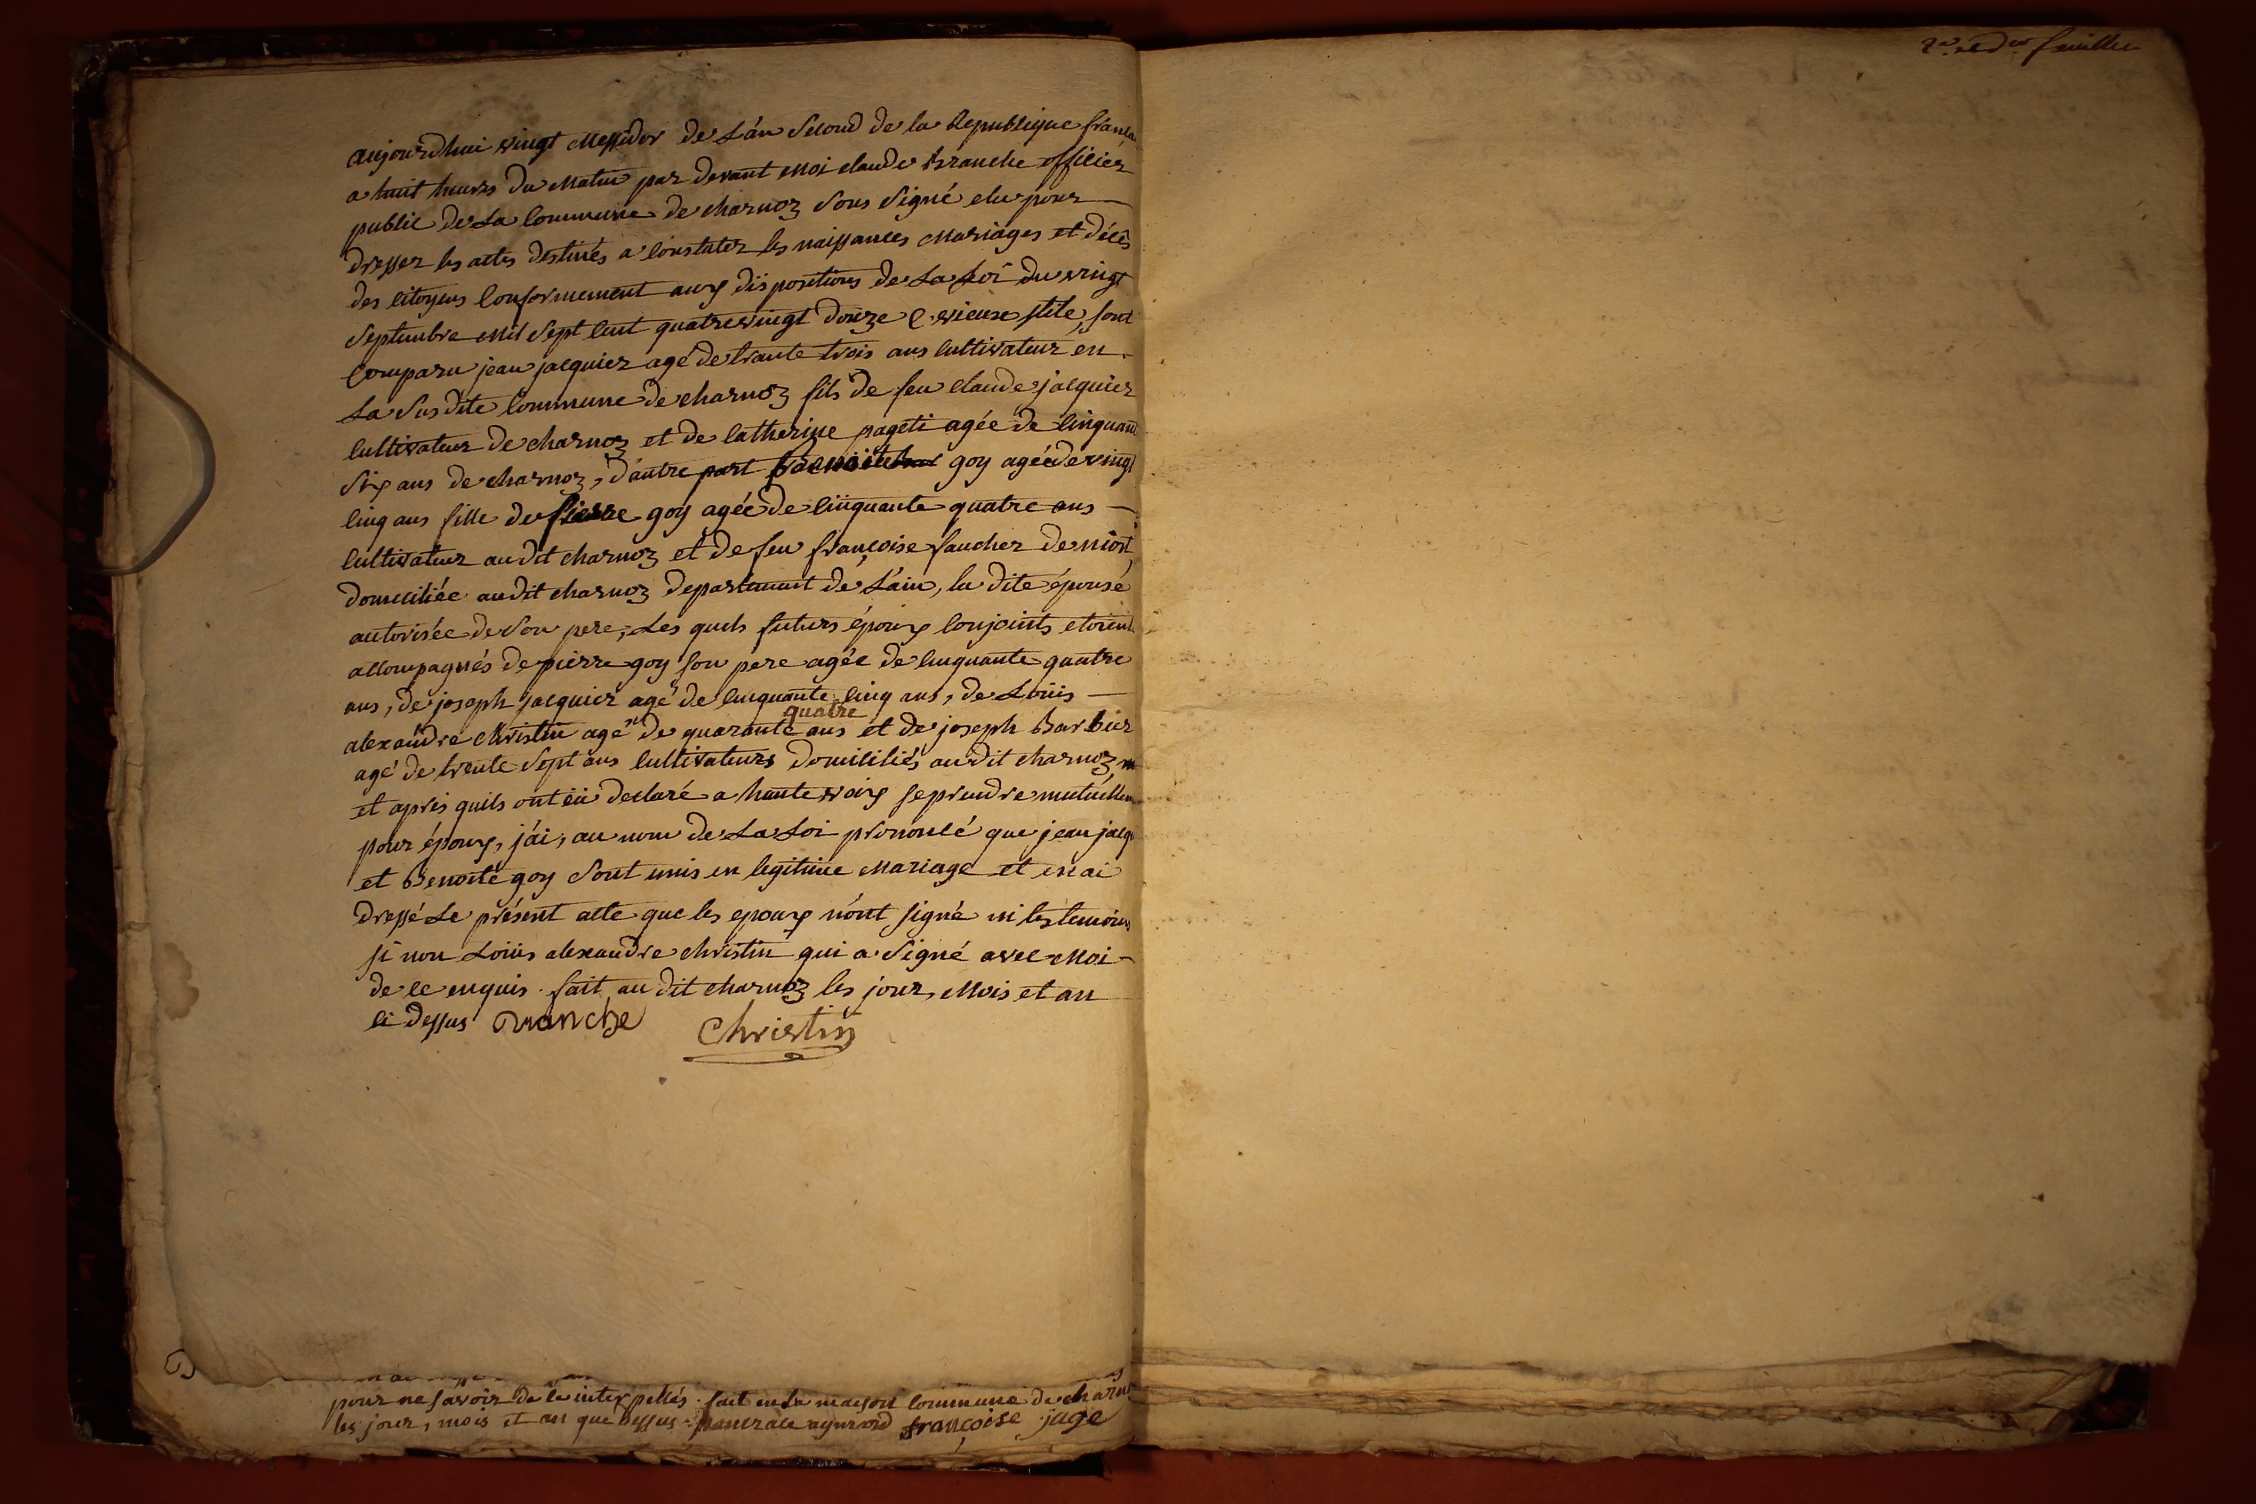 2e. et der. feuillet
aujourdhui vingt Messidor de L'án Second de la Republique frança
a huit heures du Matin par devant Moi claude Branche officiér
public de La Commune de charnoz Sous Signé elu pour
dresser les actes destinés a Constater les naissances Mariages et décès
des citoyens Conformement aux dispositions de La Loi du vingt
Septembre Mil Sept Cent quatrevingt douze vieux stile, sont
Comparu jean jacquier agé de trante trois ans Cultivateur en
La Susdite Commune de charnoz fils de feu claude jacquier
Cultivateur de charnoz et de Catherine pageti agée de Cinquant
Six ans de charnoz, d'autre part goy agée de vingt
Cinq ans fille de pierre goy agée de Cinquante quatre ans
Cultivateur au dit charnoz et de feu françoise faucher de niost,
domiciliée au dit charnoz departement de L'ain, la dite épouse
autorisée de Son pere, Les quels futurs époux Conjoints etoient
accompagnés de pierre goy son pere agée de Cinquante quatre
ans, de joseph jacquier agé de Cinquante Cinq ans, de Loüis
quatre
alexandre Christin agé de quarante ans et de joseph Barbier
agé de trente Sept ans Cultivateurs domiciliés au dit charnoz
et aprés quils ont eü declaré a haute voix se prendre mutuellem
pour époux, j'ai, au nom de La Loi prononcé que jean jacq
et Benoite goy Sont unis en legitime Mariage et en ai
dressé Le présent acte que les epoux n'ont signé ni les temoins
si non Loüis alexandre christin qui a Signé avec Moi
de ce enquis. fait au dit charnoz les jour, Mois et an
Ci dessus Branche Christin
pour ne savoir de ce interpellés. fait en la maison Commune de charno
les jour, mois et an que dessus. pancrace aymard françoise jage